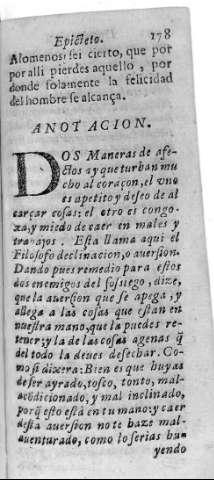 Epicteto. 178
Alomenos sei cierto, que por
por alli pierdes aquello, por
donde solamente la felicidad
del hombre se alcança.
ANOTACION.
DOS Maneras de afe-
ctos ay que turban mu
cho al coraçon, el vno
es apetito y deseo de al
carçar cosas: el otro es congo-
xa, y miedo de caer en males y
trabajos. Esta llama aqui el
Filosofo declinacion, o auersion.
Dando pues remedio para estos
dos enemigos del sossiego, dize,
que la auersion que se apega, y
allega a las cosas que estan en
nuestra mano, que la puedes re-
tener: y la de las cosas agenas q̃
del todo la deues desechar. Co-
mo si dixera: Bien es que huyas
de ser ayrado, tosco, tonto, mal-
acõdicionado, y mal inclinado,
porq̃ esto està en tu mano: y caer
desta auersion no te haze mal-
auenturado, como lo serias hu-
yendo